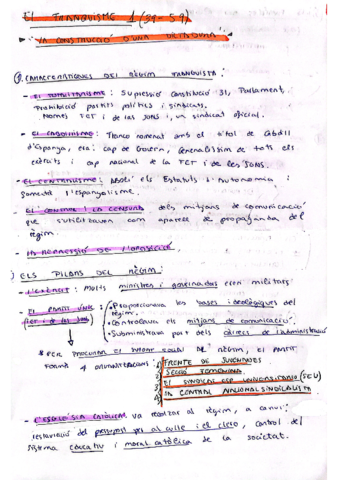 EL FRANQUISME 1 (39-59)
LA CONSTRUCCIÓ D'UNA DICTADURA
CARACTERÍSTIQUES DEL RÈGIM FRANQUISTA:
- EL TOTALITARISME: Supressió Constitució 31, Parlament.
Prohibició partits polítics i sindicats.
Només FET i de las JONS i un sindicat oficial.
- EL CABDILLISME: Franco nomenat amb el títol de Cabdill
d'Espanya, era: cap de Govern, Generalíssim de tots els
exèrcits i cap nacional de la FET i de les JONS.
- EL CENTRALISME: Abolí els Estatuts d'Autonomia i
fomentà l'espanyolisme.
- EL CONTROL I LA CENSURA dels mitjans de comunicació
que s'utilitzaven com aparell de propaganda del
règim.
- LA REPRESSIÓ DE L'OPOSICIÓ.
ELS PILARS DEL RÈGIM:
- L'EXÈRCIT: Molts ministres i governadors eren militars
- EL PARTIT ÚNIC: • Proporcionava les bases ideològiques del
(FET i de las JONS) règim.
• Controlava els mitjans de comunicació.
• Subministrava part dels càrrecs de l'administració
* PER PROCURAR EL SUPORT SOCIAL DEL RÈGIM, EL PARTIT
FORMÀ 4 ORGANITZACIONS: 1) FRENTE DE JUVENTUDES
2) SECCIÓ FEMENINA
3) EL SINDICAT ESP UNIVERSITARIO (SEU)
4) LA CENTRAL NACIONAL SINDICALISTA
- L'ESGLÉSIA CATÒLICA va recolzar al règim, a canvi:
pressupost per al culte i el clero, control del
sistema educatiu i moral catòlica de la societat.